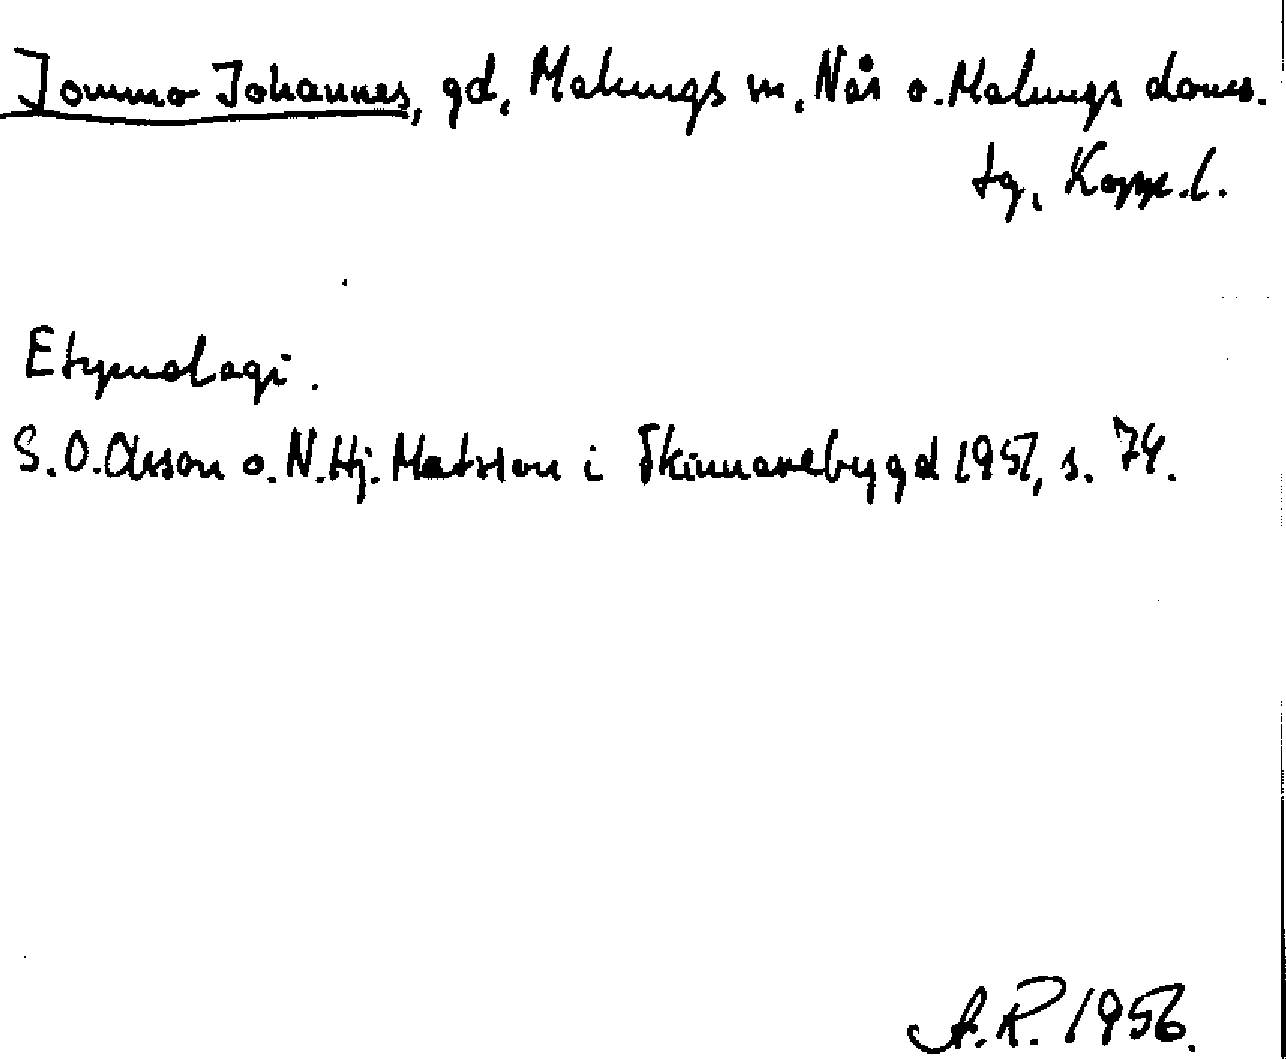 Jommo Johannes, gd, Malungs sn, Nås o. Malungs doms.
tg, Kopp. l.
Etymologi.
S. O. Olsson o. N. Hj. Matsson i Skinnarebygd 1951, s. 74.
A.R. 1956.